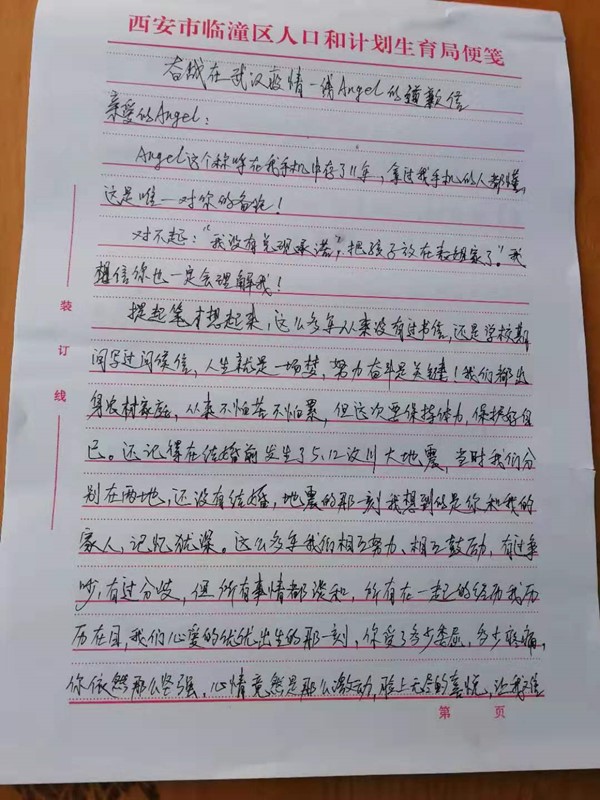 西安市临潼区人口和计划生育局便笺
奋战在武汉疫情一线Angel的道歉信
亲爱的Angel：
Angel这个称呼在我手机中存了11年，拿过我手机的人都懂，
这是唯一对你的备注！
对不起："我没有兑现承诺，把孩子放在叔姐家了"。我
想信你也一定会理解我！
提起笔才想起来，这么多年从来没有过书信，还是学校期
间写过问候信，人生就是一场梦，努力奋斗是关键！我们都出
身农村家庭，从来不怕苦不怕累，但这次要保持体力，保护好自
己。还记得在结婚前发生了5.12汶川大地震，当时我们分
别在两地，还没有结婚，地震的那一刻我想到的是你和我的
家人，记忆犹深。这么多年我们相互努力、相互鼓励，有过争
吵，有过分歧，但所有事情都谈和，所有在一起的经历我历
历在目，我们心爱的优优出生的那一刻，你受了多少委屈，多少疼痛，
你依然那么坚强，心情竟然是那么激动，脸上无尽的喜悦，让我
装
订
线
第 页